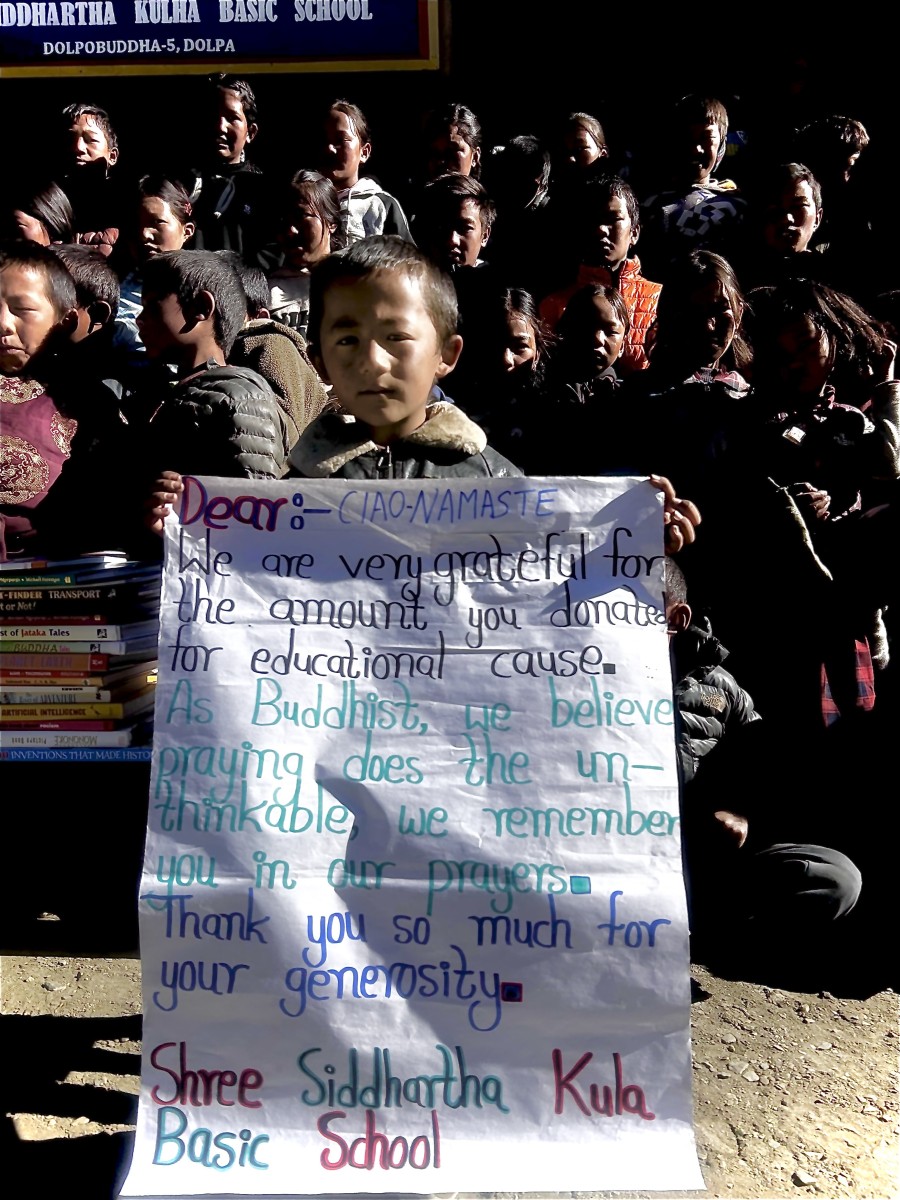 IDDHARTHA KULHA BASIC SCHOOL
DOLPOBUDDHA-5, DOLPA
Dear:- CIAO-NAMASTE
We are very grateful for
the amount you donated
for educational cause.
As Buddhist, we believe
praying does the un-
thinkable, we remember
you in our prayers.
Thank you so much for
your generosity.
Shree Siddhartha Kula
Basic School
-FINDER TRANSPORT
or Not!
st of Jataka Tales
BUDDHA
ARTIFICIAL INTELLIGENCE
INVENTIONS THAT MADE HISTO